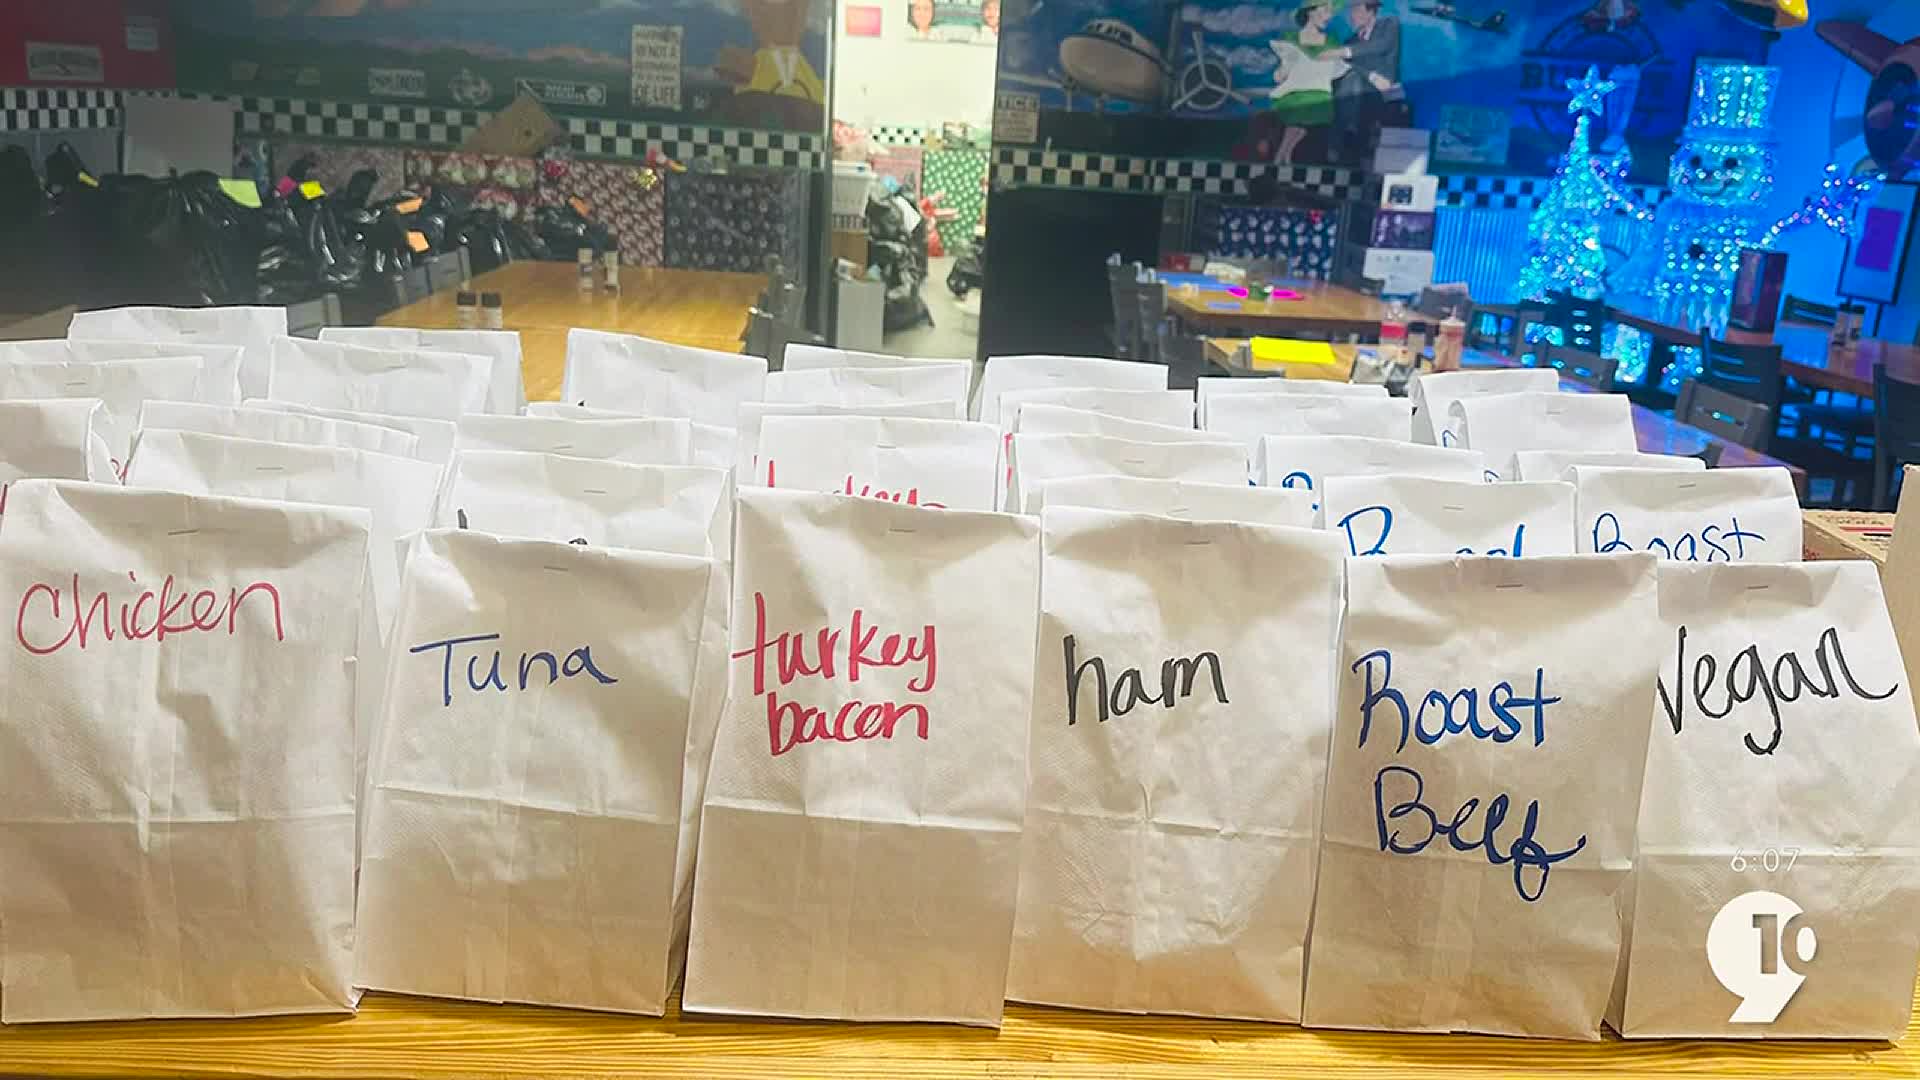 Chicken
Tuna
turkey
bacon
ham
Roast
Beef
Vegan
turkey
Roast
Roast
6:07
9
10